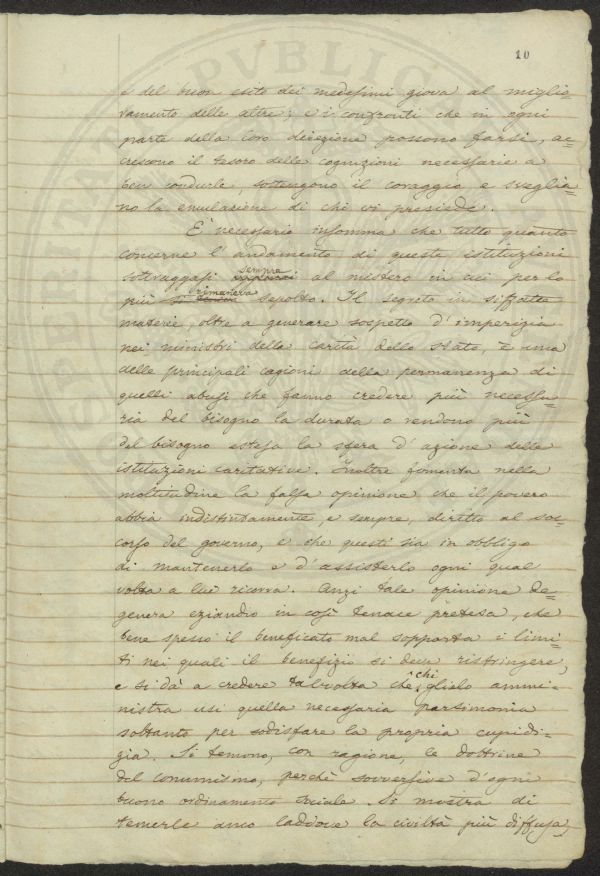 10
e del buon esito dei medesimi giova al miglio=
ramento delle altre; e i confronti che in ogni
parte della loro direzione possono farsi, ac=
crescono il tesoro delle cognizioni necessarie a
ben condurle, sostengono il coraggio, e sveglia=
no la emulazione di chi vi presiede.
E' necessario insomma che tutto quanto
concerne l'andamento di queste istituzioni
sottraggasi sempre al mistero in cui per lo
più rimaneva sepolto. Il segreto in siffatte
materie, oltre a generare sospetto d'imperizia
nei ministri della carità dello stato, è una
delle principali cagioni della permanenza di
quelli abusi che fanno credere più necessa=
ria del bisogno la durata o rendono più
del bisogno estesa la sfera d'azione delle
istituzioni caritative. Inoltre fomenta nella
moltitudine la falsa opinione che il povero
abbia indistintamente, e sempre, diritto al soc=
corso del governo, e che questi sia in obbligo
di mantenerlo e d'assisterlo ogni qual
volta a lui ricorra. Anzi tale opinione de=
genera eziandio in così tenace pretesa, che
bene spesso il beneficato mal sopporta i limi=
ti nei quali il benefizio si deve ristringere,
e si dà a credere talvolta che chi glielo ammi=
nistra usi quella necessaria parsimonia
soltanto per sodisfare la propria cupidi=
gia. Si temono, con ragione, le dottrine
del comunismo, perchè sovversive d'ogni
buono ordinamento sociale. Si mostra di
temerle anco laddove la civiltà più diffusa,